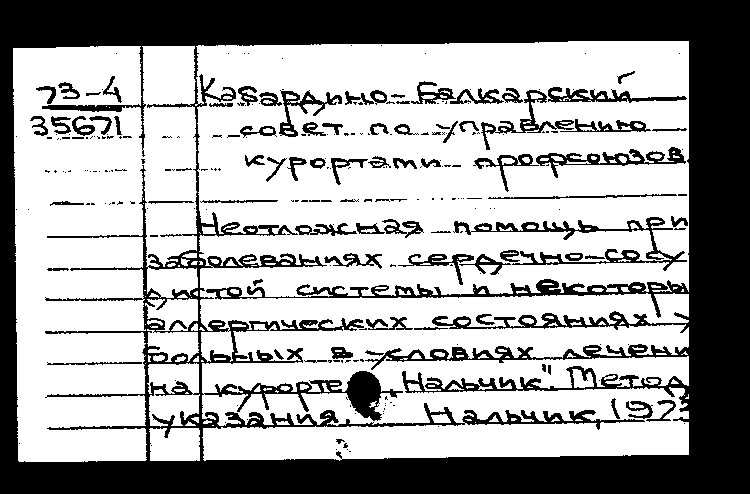 73-4
35671
Кабардино-Балкарский
совет по управлению
курортами профсоюзов
Неотложная помощь при
заболеваниях сердечно-сосу
дистой системы и некоторы
аллергических состояниях у
больных в условиях лечени
на курорте „Нальчик". Метод
указания. Нальчик, 1973